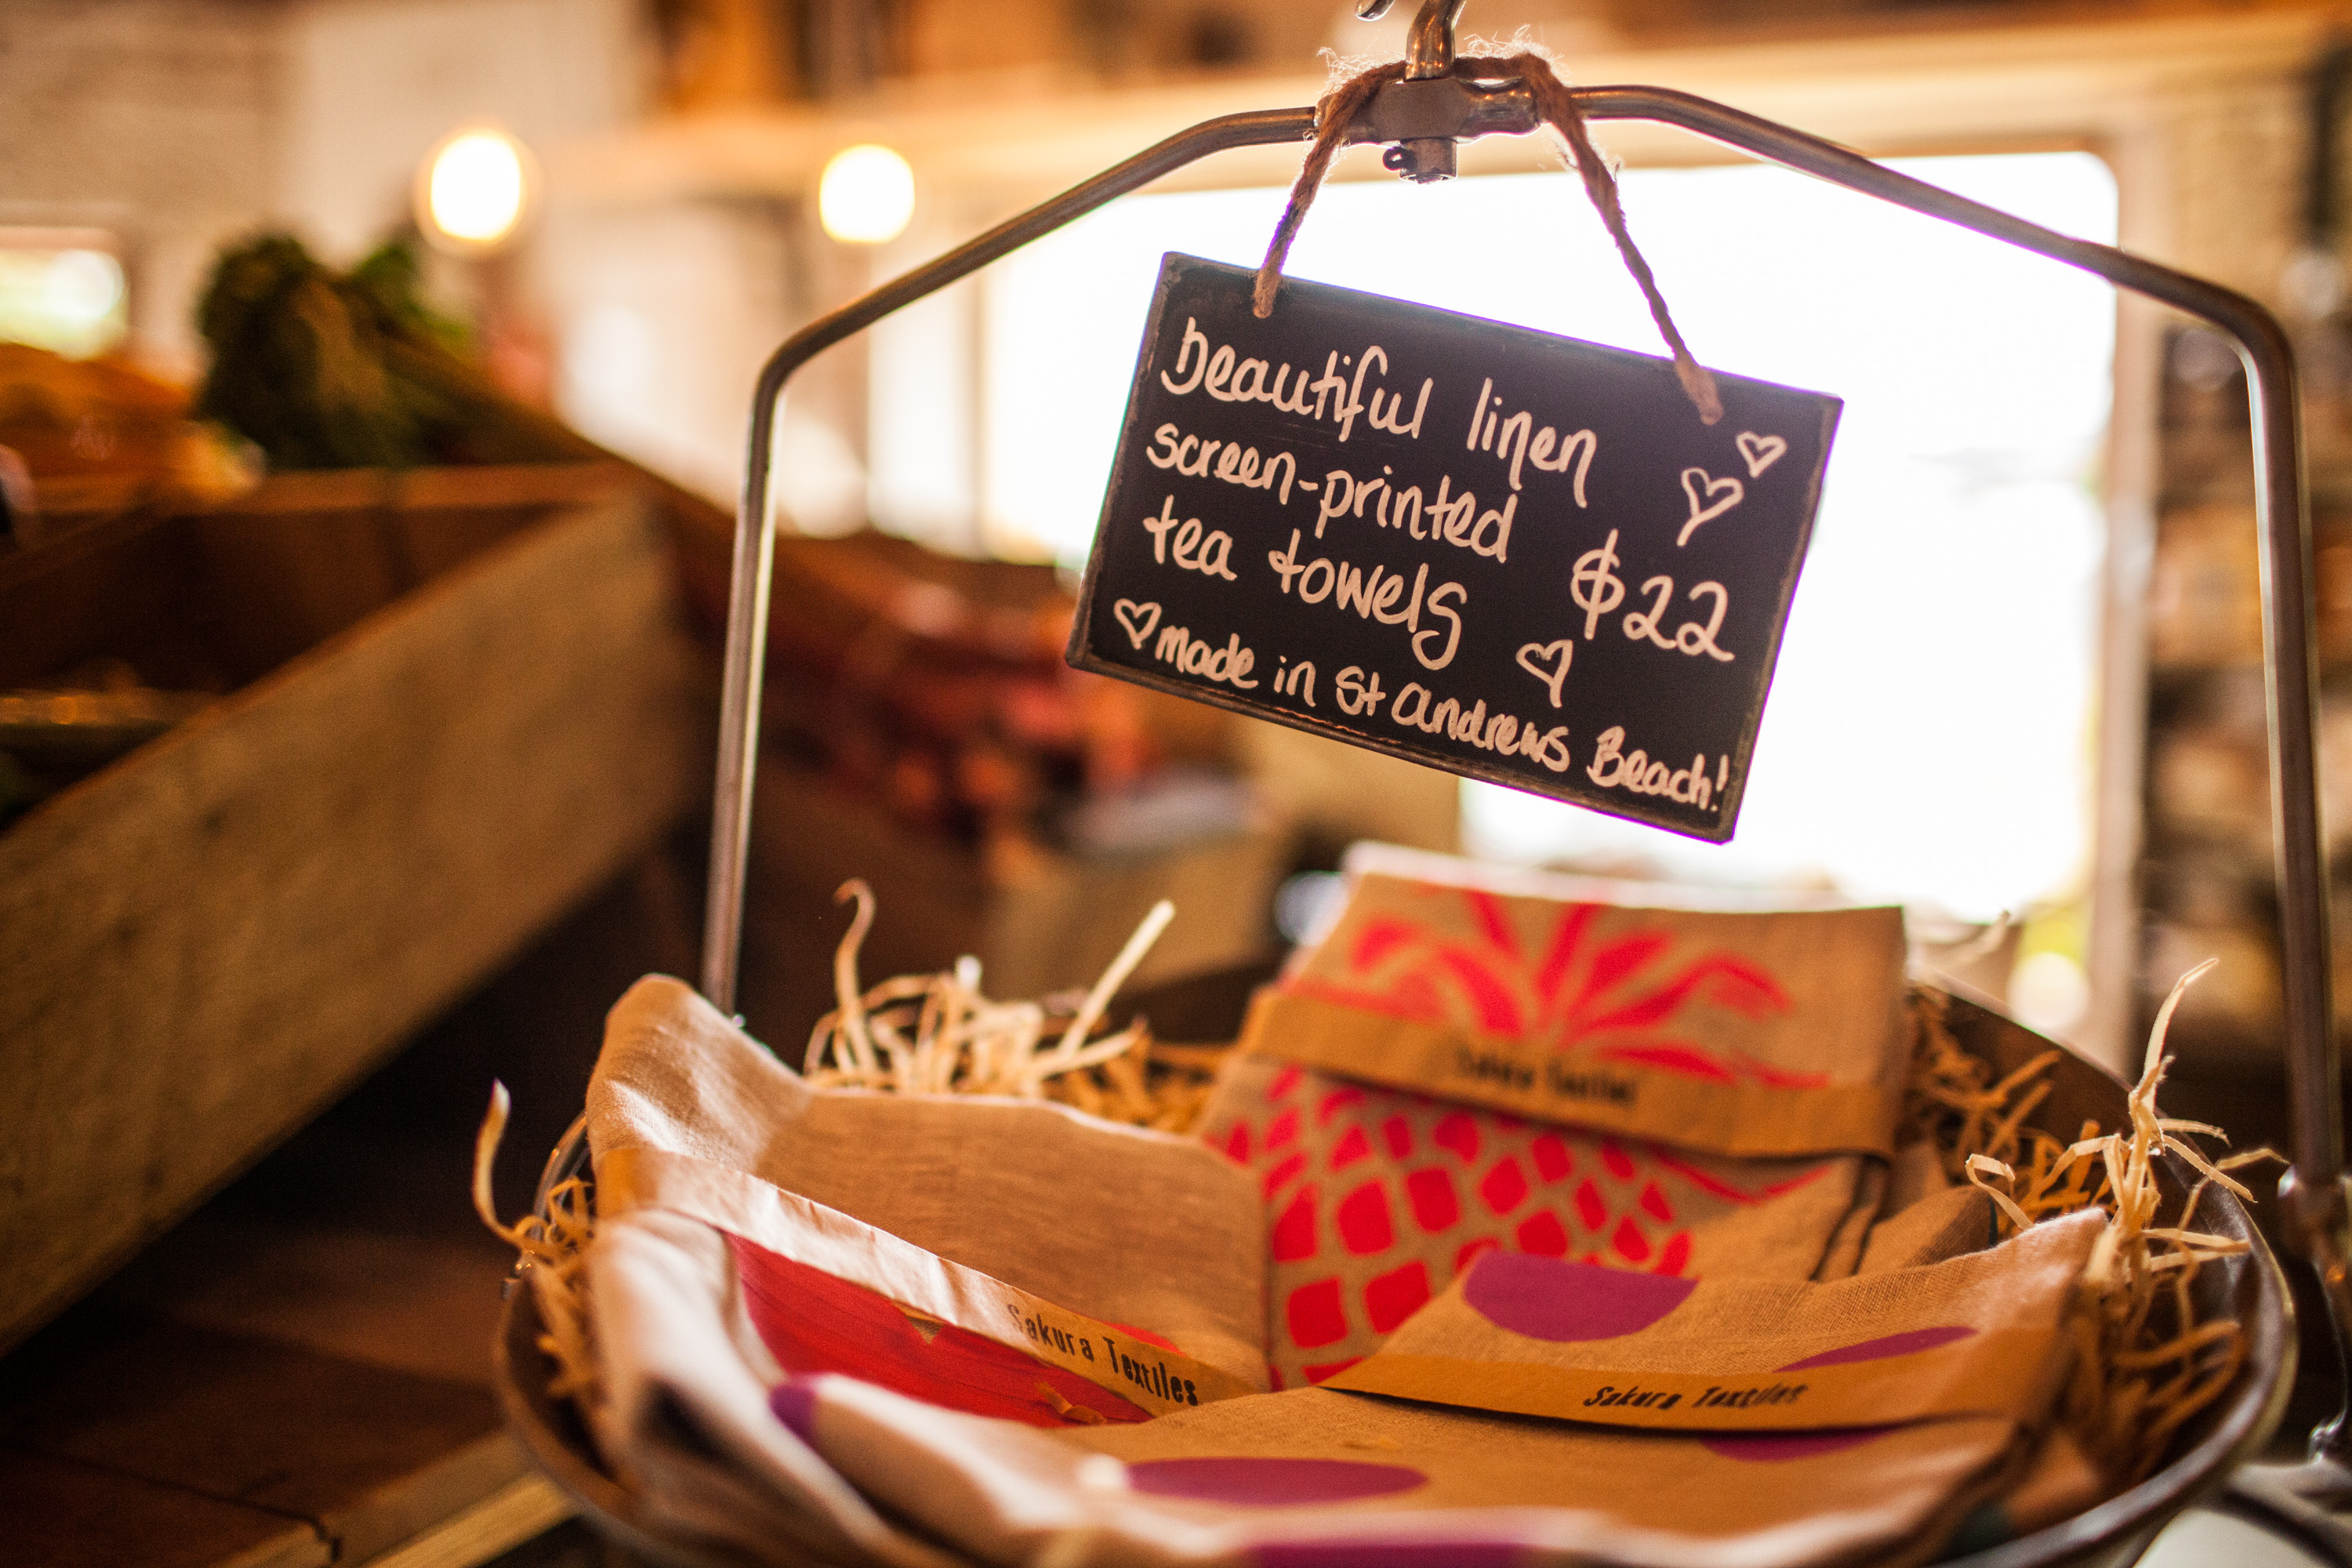 beautiful linen
screen-printed
tea towels $22
made in St Andrews Beach!
Sakura Textiles
Sakura Textiles
Sakura Textiles